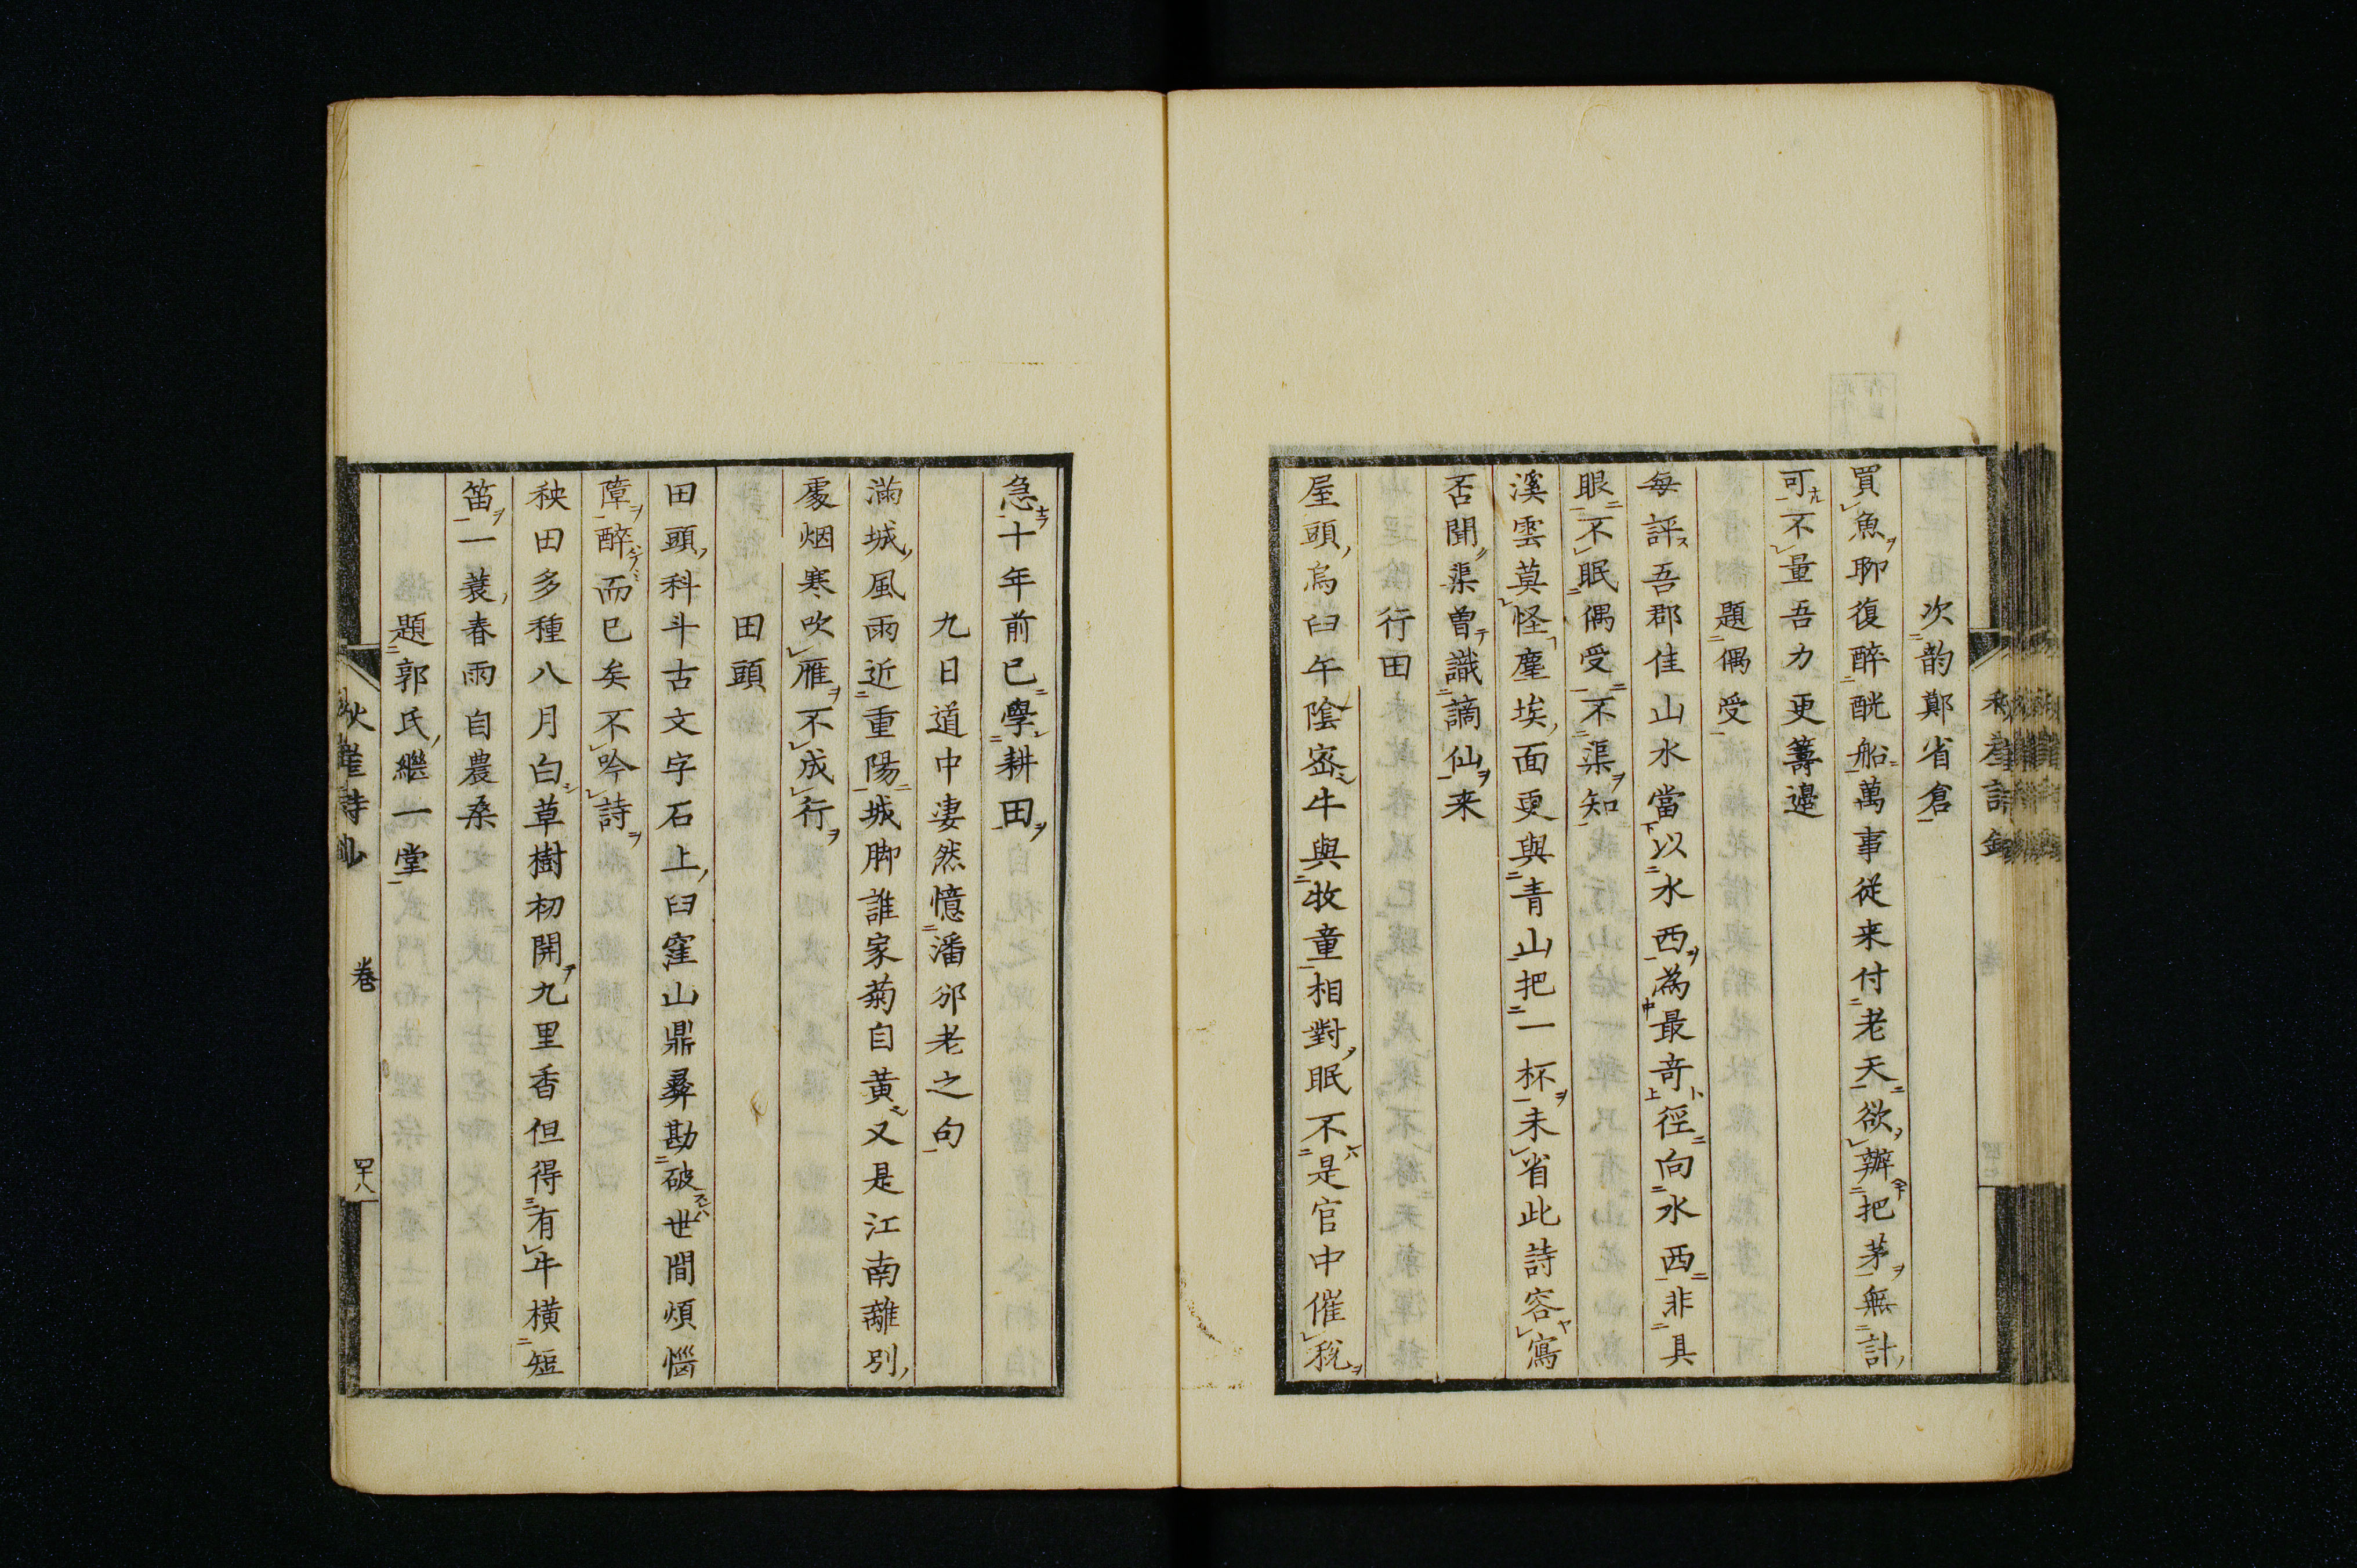 次韵鄭省倉
買魚聊復醉觥船萬事従来付老天欲辦把茅無計
可不量吾力更籌邊
題偶受
每評吾郡佳山水當以水西為最竒徑向水西非具
眼不眠偶受不渠知
溪雲莫怪塵埃面更與青山把一杯未省此詩容寫
否聞渠曽識謫仙来
行田
屋頭烏臼午陰宻牛與牧童相對眠不是官中催稅
急十年前已學耕田
九日道中凄然憶潘邠老之句
滿城風雨近重陽城脚誰家菊自黃又是江南離別
處烟寒吹雁不成行
田頭
田頭科斗古文字石上臼窪山鼎彞勘破世間煩惱
障醉而已矣不吟詩
秧田多種八月白草樹初開九里香但得有牛橫短
笛一蓑春雨自農桒
題郭氏繼一堂
秋崖詩鈔
卷
四十八